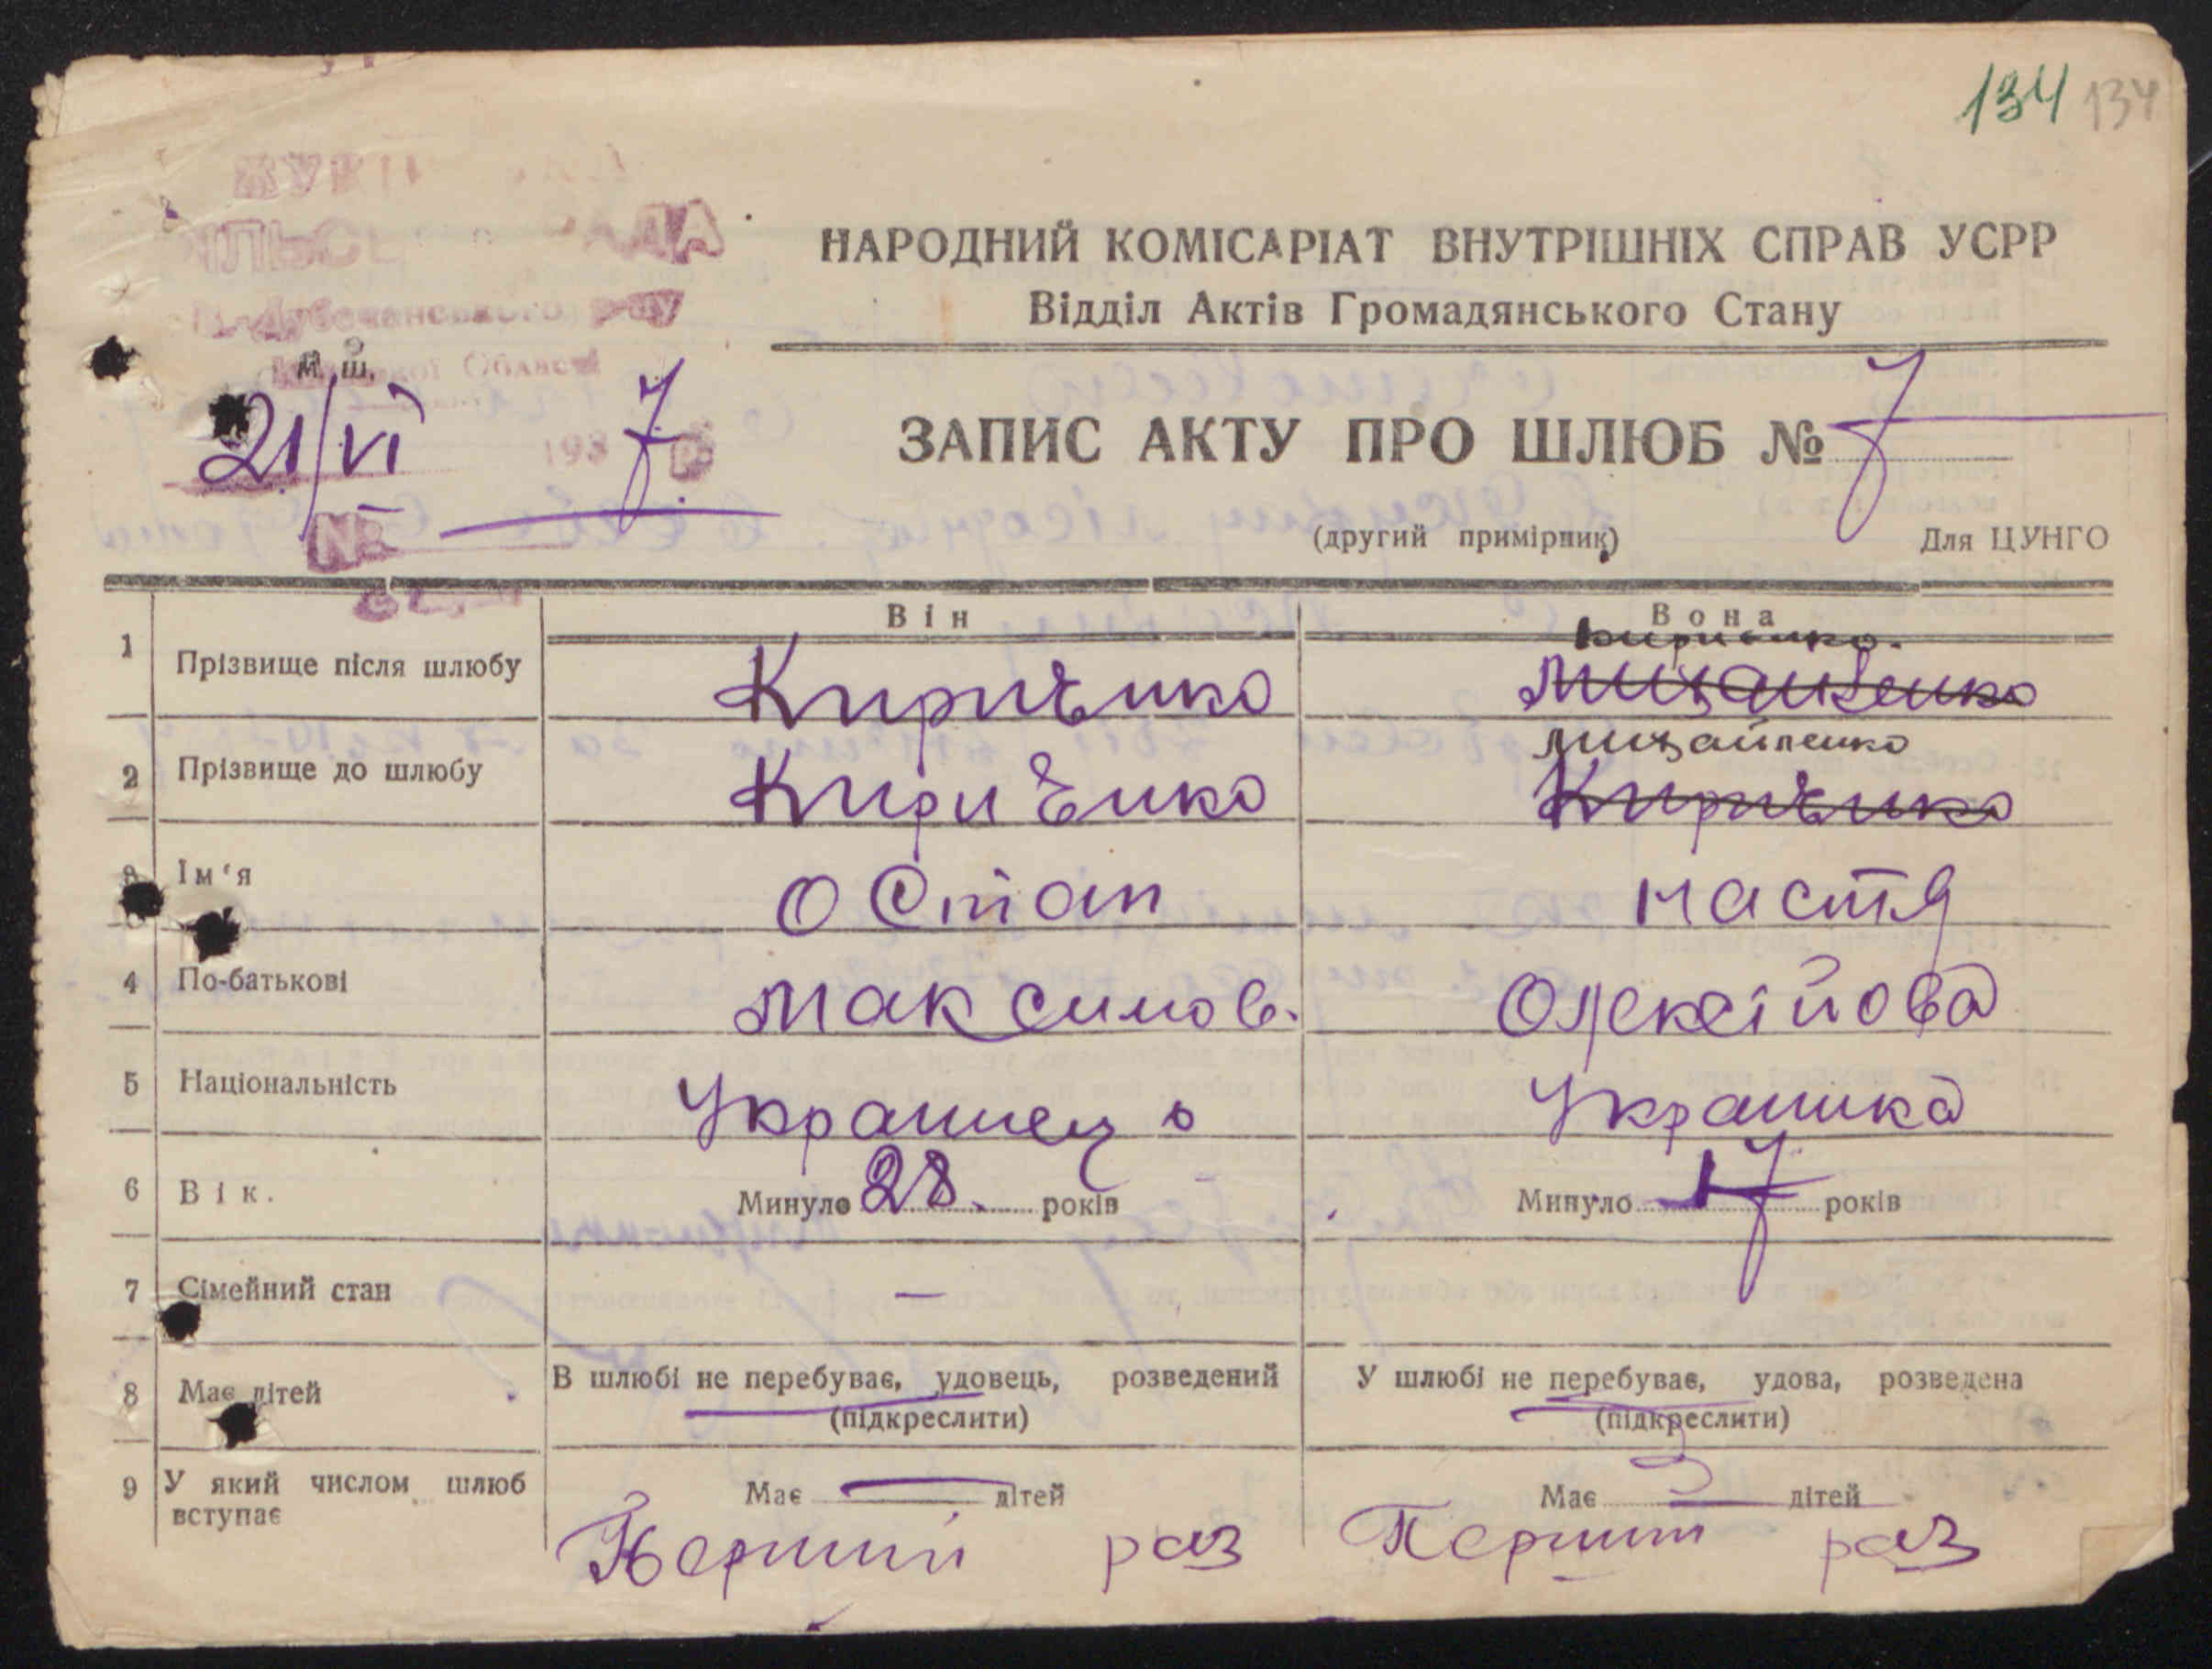 134 134
РАДА
НАРОДНИЙ КОМІСАРІАТ ВНУТРІШНІХ СПРАВ УСРР
Відділ Актів Громадянського Стану
М. Ш.
21/VI 1937 р.
ЗАПИС АКТУ ПРО ШЛЮБ № 7
№
(другий примірник) Для ЦУНГО
Він Вона
Кириенко.
1 Прізвище після шлюбу Киричнко Михайленко
Михайленко
2 Прізвище до шлюбу Киричнко Киричнко
3 Ім'я Остап Настя
4 По-батькові Максимов. Олексійова
5 Національність Украинець Украинка
6 Вік. Минуло 28. років Минуло 17 років
7 Сімейний стан —
8 Має дітей В шлюбі не перебуває, удовець, розведений У шлюбі не перебуває, удова, розведена
(підкреслити) (підкреслити)
9 У який числом шлюб вступає Має — дітей Має — дітей
Перший раз Перший раз